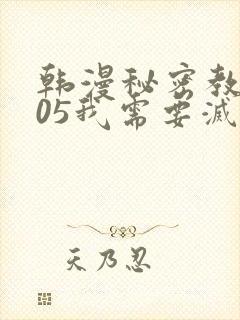 韩漫秘密教
05我需要灭
天乃忍